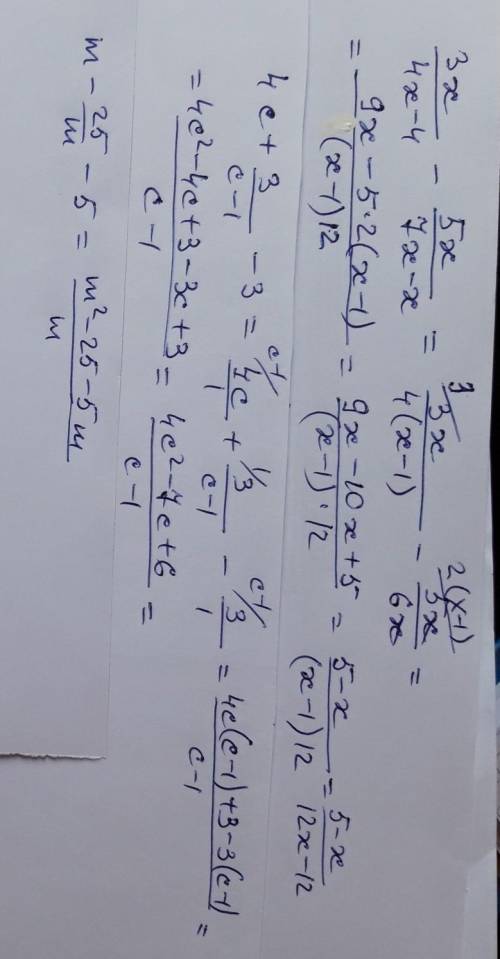 3x/(4x-4) - 5x/(7x-x) = 3/ 3x/(4(x-1)) - 2(x-1)/ 5x/(6x) =
= (9x - 5·2(x-1))/((x-1)12) = (9x - 10x + 5)/((x-1)·12) = (5-x)/((x-1)12) = (5-x)/(12x-12)
4c + 3/(c-1) - 3 = c-1/ 4c/1 + 1/ 3/(c-1) - c-1/ 3/1 = (4c(c-1)+3-3(c-1))/(c-1) =
= (4c²-4c+3-3c+3)/(c-1) = (4c²-7c+6)/(c-1) =
m - 25/m - 5 = (m²-25-5m)/m